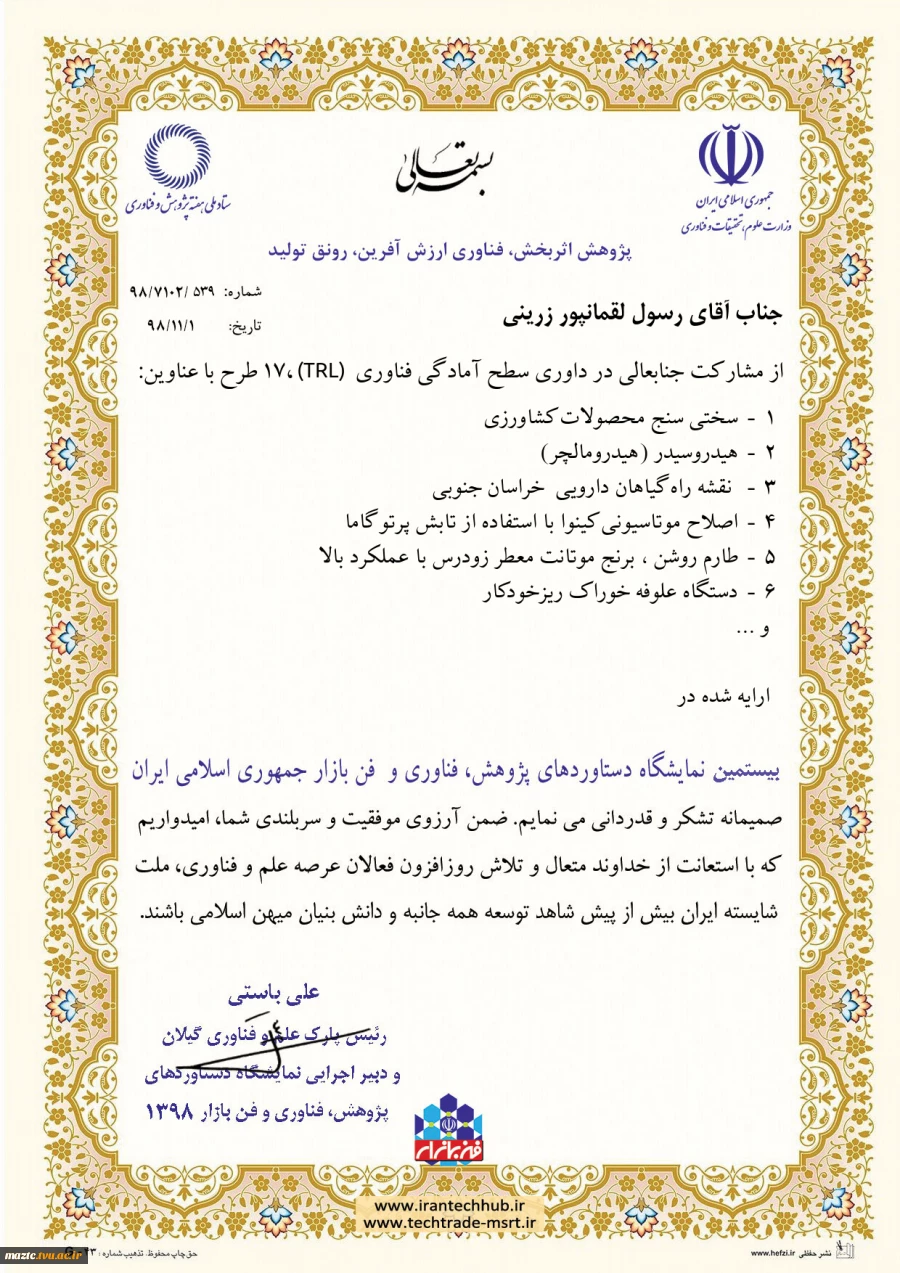 بسمه تعالی
جمهوری اسلامی ایران
وزارت علوم، تحقیقات و فناوری
ستاد ملی هفته پژوهش و فناوری
پژوهش اثربخش، فناوری ارزش آفرین، رونق تولید
شماره: ۵۳۹ /۹۸/۷۱۰۲
تاریخ: ۹۸/۱۱/۱
جناب آقای رسول لقمانپور زرینی
از مشارکت جنابعالی در داوری سطح آمادگی فناوری (TRL)، ۱۷ طرح با عناوین:
۱ - سختی سنج محصولات کشاورزی
۲ - هیدروسیدر (هیدرومالچر)
۳ - نقشه راه گیاهان دارویی خراسان جنوبی
۴ - اصلاح موتاسیونی کینوا با استفاده از تابش پرتو گاما
۵ - طارم روشن ، برنج موتانت معطر زودرس با عملکرد بالا
۶ - دستگاه علوفه خوراک ریزخودکار
و ...
ارایه شده در
بیستمین نمایشگاه دستاوردهای پژوهش، فناوری و فن بازار جمهوری اسلامی ایران
صمیمانه تشکر و قدردانی می نمایم. ضمن آرزوی موفقیت و سربلندی شما، امیدواریم
که با استعانت از خداوند متعال و تلاش روزافزون فعالان عرصه علم و فناوری، ملت
شایسته ایران بیش از پیش شاهد توسعه همه جانبه و دانش بنیان میهن اسلامی باشند.
علی باستی
رئیس پارک علم و فناوری گیلان
و دبیر اجرایی نمایشگاه دستاوردهای
پژوهش، فناوری و فن بازار ۱۳۹۸
فن بازار
www.irantechhub.ir
www.techtrade-msrt.ir
نشر حفظی www.hefzi.ir
حق چاپ محفوظ. تذهیب شماره :
maztc.tvu.ac.ir